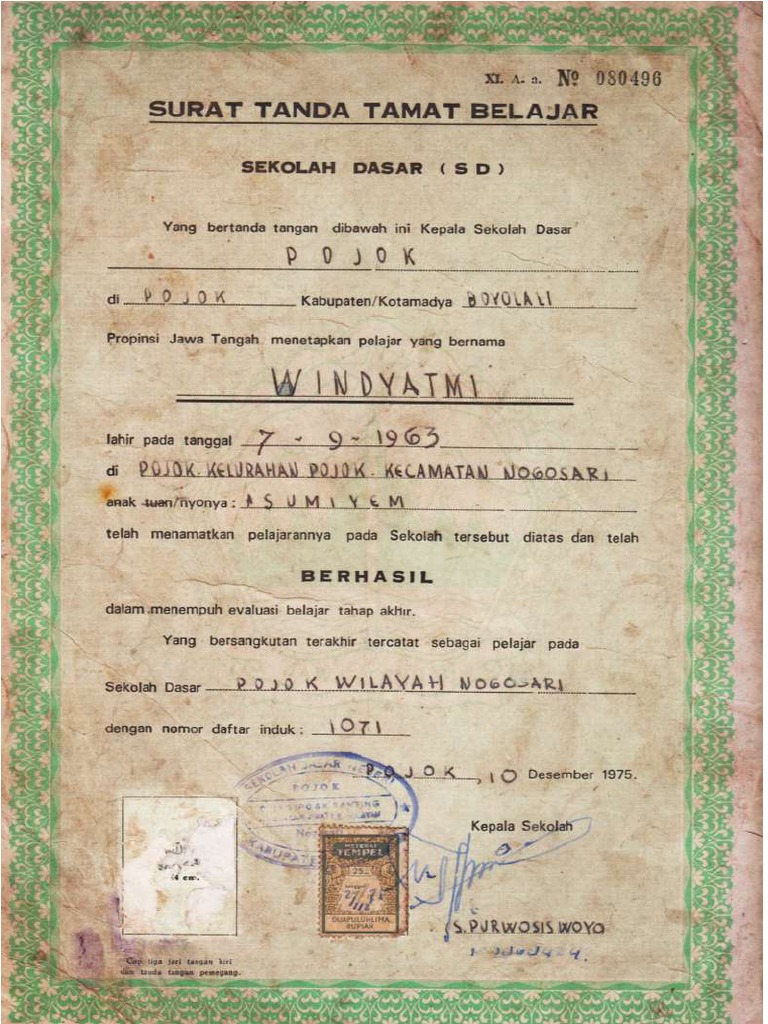 XI. A. a. Nº 080496
SURAT TANDA TAMAT BELAJAR
SEKOLAH DASAR ( S D )
Yang bertanda tangan dibawah ini Kepala Sekolah Dasar
POJOK
di POJOK Kabupaten/Kotamadya BOYOLALI
Propinsi Jawa Tengah menetapkan pelajar yang bernama
WINDYATMI
lahir pada tanggal 7 - 9 - 1963
di POJOK. KELURAHAN POJOK. KECAMATAN NOGOSARI
anak tuan/nyonya : ASUMIYEM
telah menamatkan pelajarannya pada Sekolah tersebut diatas dan telah
BERHASIL
dalam menempuh evaluasi belajar tahap akhir.
Yang bersangkutan terakhir tercatat sebagai pelajar pada
Sekolah Dasar POJOK WILAYAH NOGOSARI
dengan nomor daftar induk : 1071
POJOK, 10 Desember 1975.
SEKOLAH DASAR NEGERI
POJOK
KABUPATEN
Kepala Sekolah
METERAI
TEMPEL
25
DUAPULUHLIMA
RUPIAH
4 cm.
S. PURWOSISWOYO
Cap tiga jari tangan kiri
dan tanda tangan pemegang.